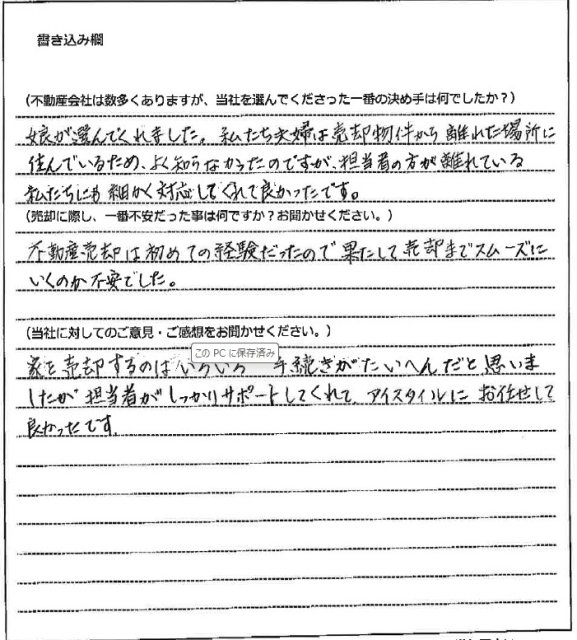 書き込み欄
(不動産会社は数多くありますが、当社を選んでくださった一番の決め手は何でしたか?)
娘が選んでくれました。私たち夫婦は売却物件から離れた場所に
住んでいるため、よく知らなかったのですが、担当者の方が離れている
私たちにも細かく対応してくれて良かったです。
(売却に際し、一番不安だった事は何ですか?お聞かせください。)
不動産売却は初めての経験だったので果たして売却までスムーズに
いくのか不安でした。
(当社に対してのご意見・ご感想をお聞かせください。)
この PC に保存済み
家を売却するのはいろいろ 手続きがたいへんだと思いま
したが担当者がしっかりサポートしてくれて、アイスタイルにお任せして
良かったです。